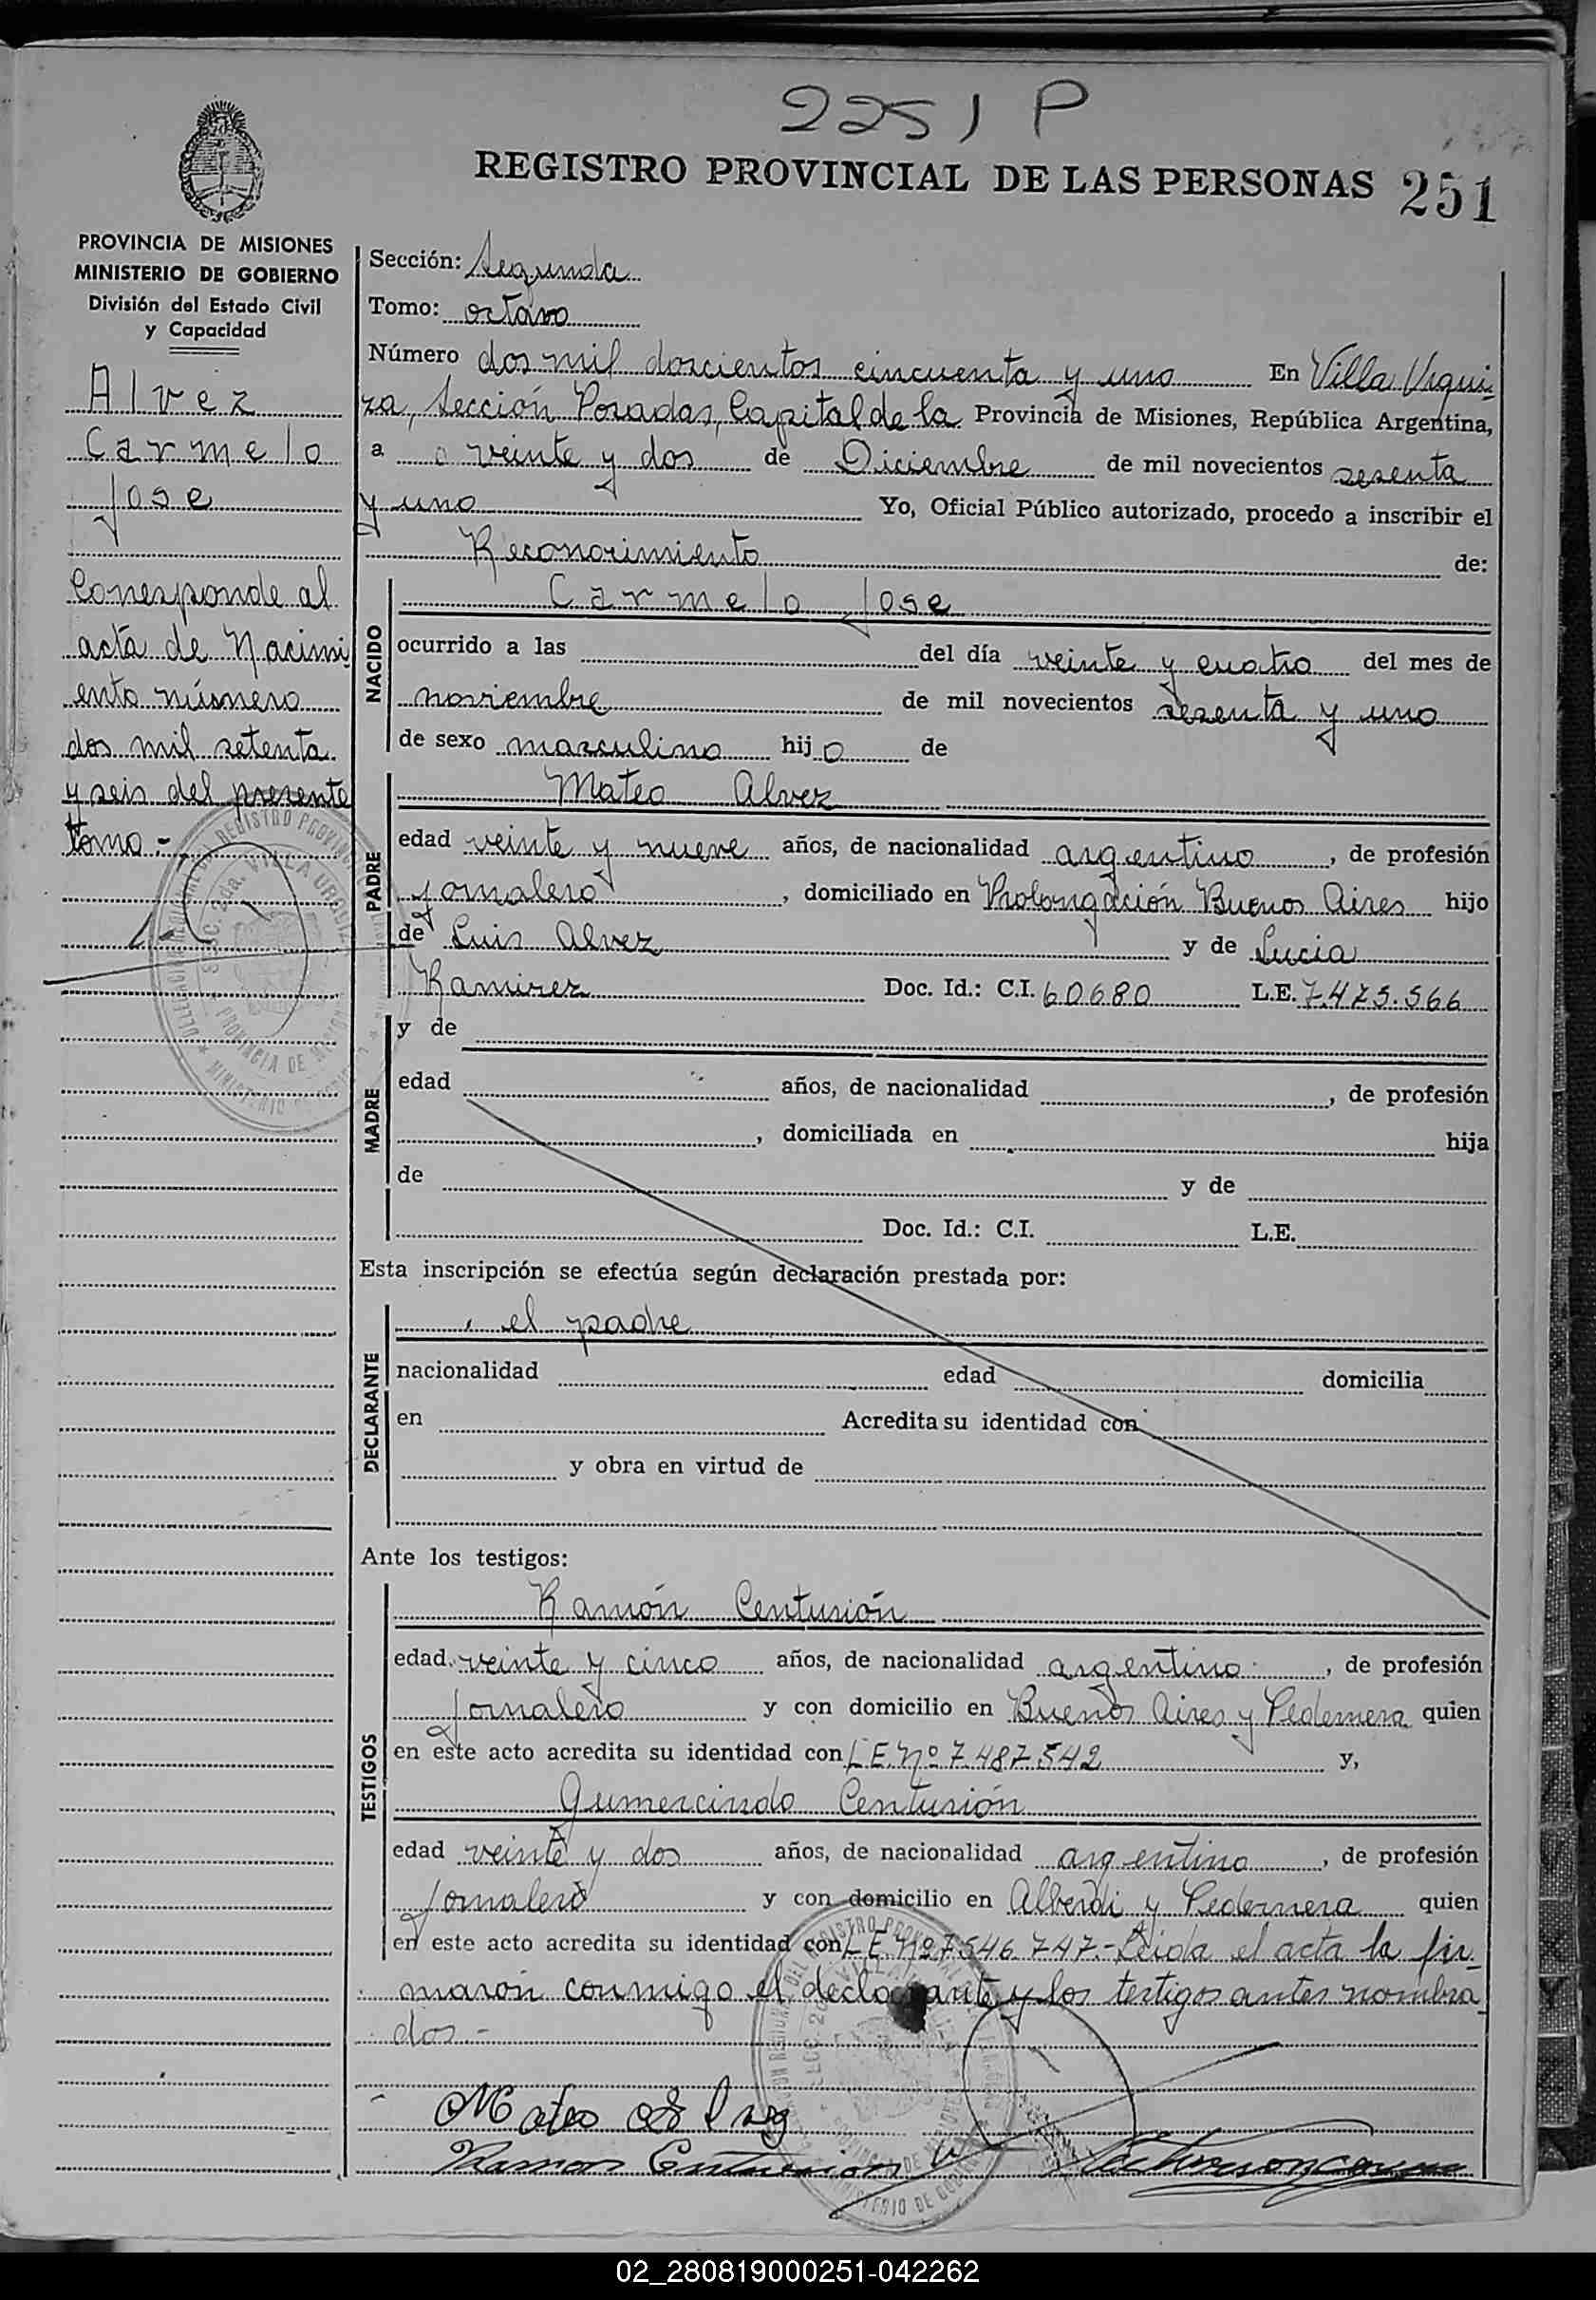 2251 P
REGISTRO PROVINCIAL DE LAS PERSONAS 251
PROVINCIA DE MISIONES
MINISTERIO DE GOBIERNO
División del Estado Civil
y Capacidad
Alvez
Carmelo
Jose
Corresponde al
acta de Nacimi
ento número
dos mil setenta
y seis del presente
tomo.-
Sección: Segunda
Tomo: octavo
Número dos mil doscientos cincuenta y uno En Villa Urqui-
za, Sección Posadas, Capital de la Provincia de Misiones, República Argentina,
a veinte y dos de Diciembre de mil novecientos sesenta
y uno Yo, Oficial Público autorizado, procedo a inscribir el
Reconocimiento de:
NACIDO
Carmelo Jose
ocurrido a las del día veinte y cuatro del mes de
noviembre de mil novecientos sesenta y uno
de sexo masculino hijo de
PADRE
Mateo Alvez
edad veinte y nueve años, de nacionalidad argentino, de profesión
jornalero, domiciliado en Prolongación Buenos Aires hijo
de Luis Alvez y de Lucia
Ramirez Doc. Id.: C.I. 60680 L.E. 7.475.566
MADRE
y de
edad años, de nacionalidad , de profesión
, domiciliada en hija
de y de
Doc. Id.: C.I. L.E.
Esta inscripción se efectúa según declaración prestada por:
DECLARANTE
el padre
nacionalidad edad domicilia
en Acredita su identidad con
y obra en virtud de
Ante los testigos:
TESTIGOS
Ramón Centurión
edad veinte y cinco años, de nacionalidad argentino, de profesión
jornalero y con domicilio en Buenos Aires y Pedernera quien
en este acto acredita su identidad con L.E. Nº 7487542 y,
Gumercindo Centurión
edad veinte y dos años, de nacionalidad argentino, de profesión
jornalero y con domicilio en Alberdi y Pedernera quien
en este acto acredita su identidad con L.E. Nº 7546.747.- Leida el acta la fir-
maron conmigo el declarante y los testigos antes nombra
dos.-
Mateo Alvez
Ramon Centurion
02_280819000251-042262